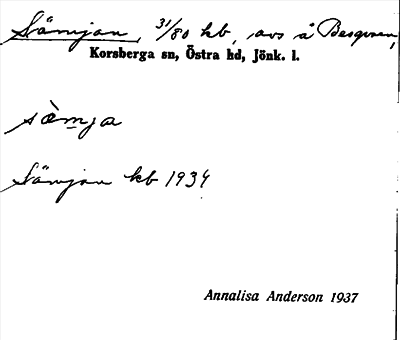 Sämjan, 31/80 kb, avs å Besqvarn,
Korsberga sn, Östra hd, Jönk. l.
sämja
Sämjan kb 1934
Annalisa Anderson 1937